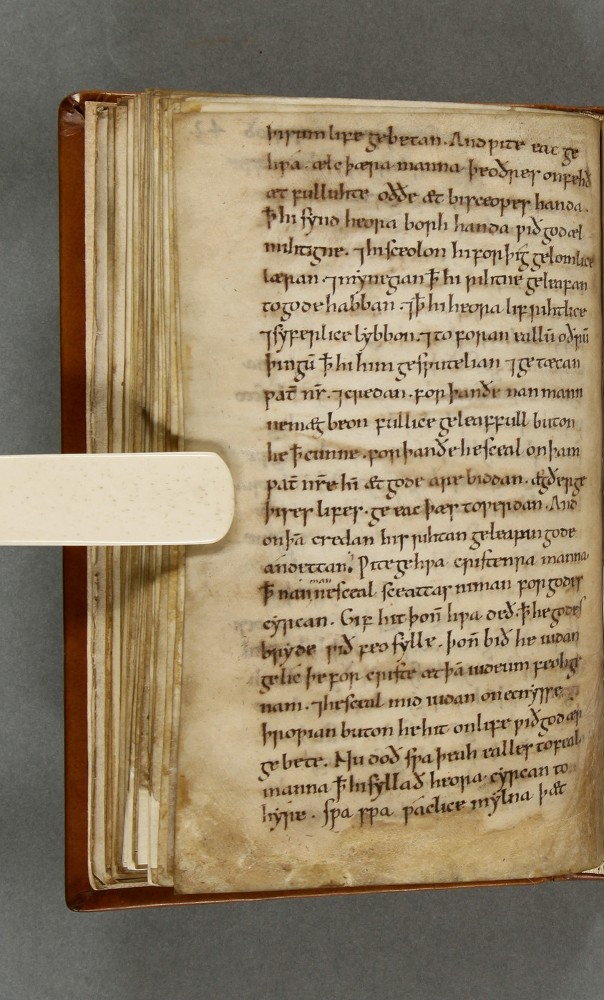 þissum life gebetan. And ƿite eac ge
hƿa. ælc þæra manna þe oðres onfehð
æt fulluhte oððe æt bisceopes handa.
ꝥ hi synd heora borh handa ƿið god æl
mihtigne. ⁊ hi sceolon hi for þig gelomlice
læran. ⁊ mynegian ꝥ hi rihtne geleafan
to gode habban. ⁊ ꝥ hi heora lif rihtlice
⁊ syferlice lybbon. ⁊ to foran eallū oðrū
þingū ꝥ hi him gesputelian ⁊ ge tæcan
pat̄ nr̄. ⁊ credan. for þan ðe nan mann
ne mæg beon fullice geleaffull buton
he ꝥ cunne. for þan ðe he sceal on þam
pat̄ nr̄e hī æt gode are biddan. ægðer ge
þises lifes. ge eac þæs toƿerdan. And
on þā credan his rihtan geleafan gode
andettan. Ƿite gehƿa cristenra manna
ꝥ nan man ne sceal sceattas niman for godes
cyrican. Gif hit þon̄ hƿa deð. ꝥ he godes
bryde ƿið feo sylle. þon̄ bið he iudan
gelic þe for criste æt þā iudeum feoh ge
nam. ⁊ he sceal mid iudan on ecnysse
þroƿian buton he hit on life ƿið god ær
gebete. Nu doð sƿa þeah ealles to feala
manna ꝥ hi syllað heora cyrican to
hyre. sƿa sƿa ƿaclice mylna þæt